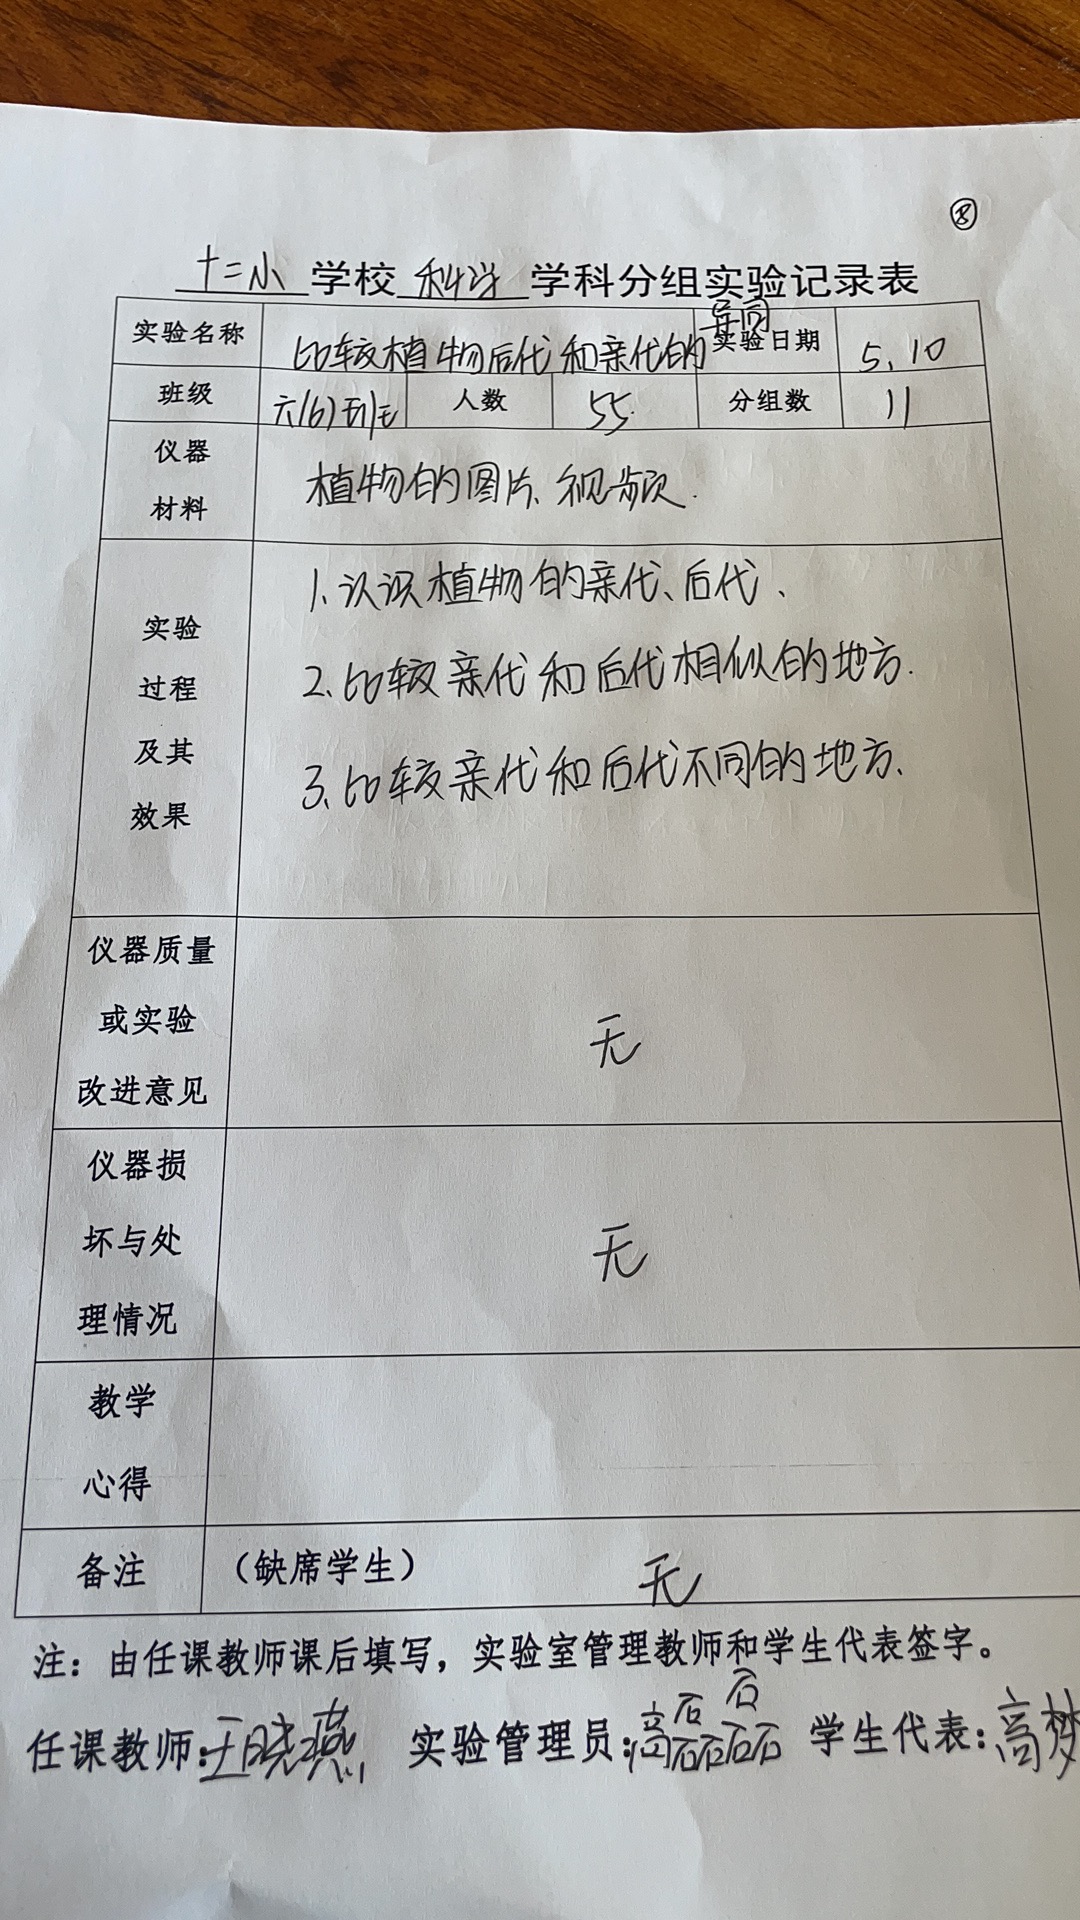 ⑧
十二小学校科学学科分组实验记录表
实验名称 比较植物后代和亲代的异同 实验日期 5.10
班级 六(6)班 人数 55 分组数 11
仪器
材料
植物的图片、视频.
实验
过程
及其
效果
1.认识植物的亲代、后代、
2.比较亲代和后代相似的地方.
3.比较亲代和后代不同的地方、
仪器质量
或实验
改进意见
无
仪器损
坏与处
理情况
无
教学
心得
备注 (缺席学生) 无
注：由任课教师课后填写，实验室管理教师和学生代表签字。
任课教师:王晓燕 实验管理员:高磊磊 学生代表:高梦